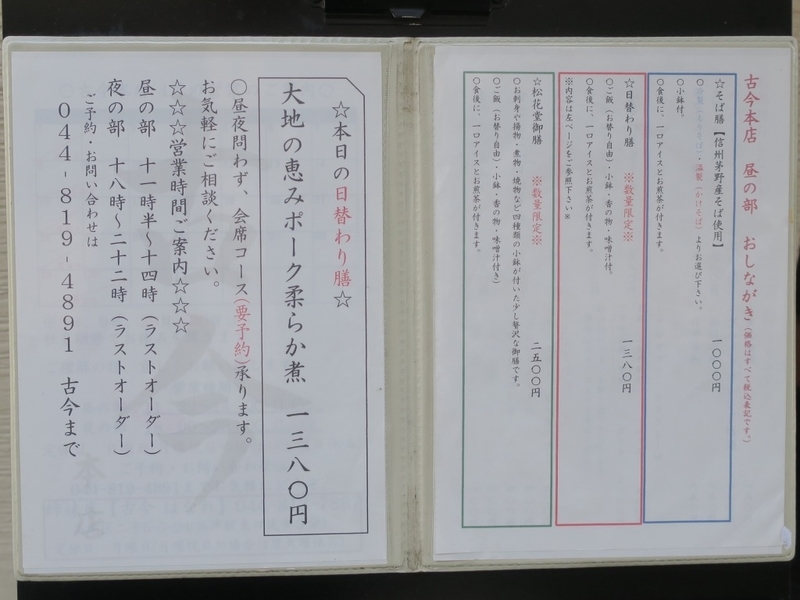 古今本店　昼の部　おしながき（価格はすべて税込表記です。）
☆そば膳【信州茅野産そば使用】　一〇〇〇円
〇冷製（ざるそば）・温製（かけそば）よりお選び下さい。
〇小鉢付。
〇食後に、一口アイスとお煎茶が付きます。
☆日替わり膳　※数量限定※　一三八〇円
〇ご飯（お替り自由）・小鉢・香の物・味噌汁付。
〇食後に、一口アイスとお煎茶が付きます。
※内容は左ページをご参照下さい※
☆松花堂御膳　※数量限定※　二五〇〇円
〇お刺身や揚物・煮物・焼物など四種類の小鉢が付いた少し贅沢な御膳です。
〇ご飯（お替り自由）・小鉢・香の物・味噌汁付き）
〇食後に、一口アイスとお煎茶が付きます。
☆本日の日替わり膳☆
大地の恵みポーク柔らか煮　一三八〇円
〇昼夜問わず、会席コース（要予約）承ります。
お気軽にご相談ください。
☆☆☆営業時間ご案内☆☆☆
昼の部　十一時半～十四時（ラストオーダー）
夜の部　十八時～二十二時（ラストオーダー）
ご予約・お問い合わせは
044-819-4891　古今まで